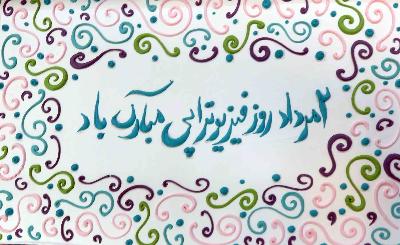 ۲ امرداد روز فیزیوتراپی مبارک باد